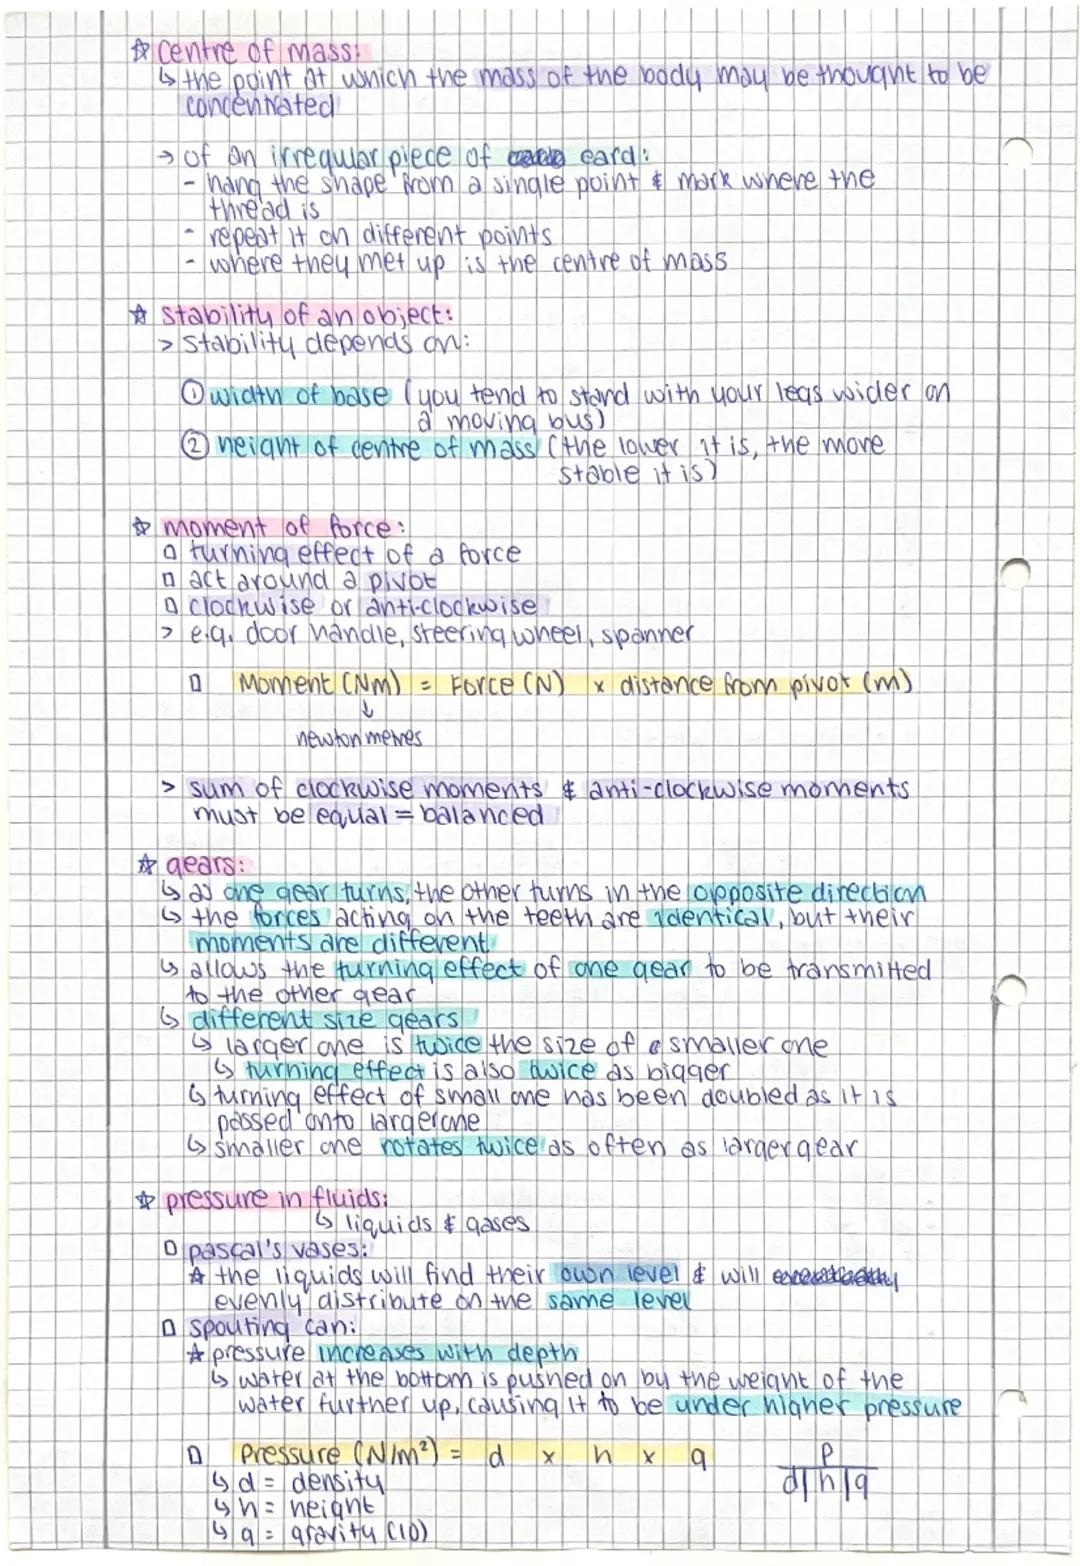 ☆ centre of mass:
↳ the point at which the mass of the body may be thought to be
concentrated
→ of an irregular piece of card:
- hang the shape from a single point & mark where the
thread is
- repeat it on different points
- where they met up is the centre of mass
☆ stability of an object:
> stability depends on:
① width of base (you tend to stand with your legs wider on
a moving bus)
② height of centre of mass (the lower it is, the more
stable it is)
☆ moment of force:
▯ turning effect of a force
▯ act around a pivot
▯ clockwise or anti-clockwise
> e.g. door handle, steering wheel, spanner
▯ Moment (Nm) = Force (N) x distance from pivot (m)
↓
newton metres
> sum of clockwise moments & anti-clockwise moments
must be equal = balanced
☆ gears:
↳ as one gear turns, the other turns in the opposite direction
↳ the forces acting on the teeth are identical, but their
moments are different
↳ allows the turning effect of one gear to be transmitted
to the other gear
↳ different size gears
↳ larger one is twice the size of a smaller one
↳ turning effect is also twice as bigger
↳ turning effect of small one has been doubled as it is
passed onto larger one
↳ smaller one rotates twice as often as larger gear
☆ pressure in fluids:
↳ liquids & gases
▯ pascal's vases:
☆ the liquids will find their own level & will
evenly distribute on the same level
▯ spouting can:
☆ pressure increases with depth
↳ water at the bottom is pushed on by the weight of the
water further up, causing it to be under higher pressure
▯ Pressure (N/m²) = d x h x g
P
d|h|g
↳ d = density
↳ h = height
↳ g = gravity (10)